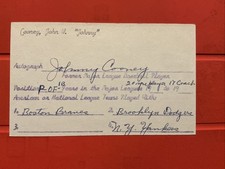 Cooney, John W. "Johnny"
Autograph Johnny Cooney
Former Major League Baseball Player
Position P-OF- 19 Years in the Major Leagues 19 to 19
American or National League Teams Played With:
1 Boston Braves 2 Brooklyn Dodgers
3 N.Y. Yankees